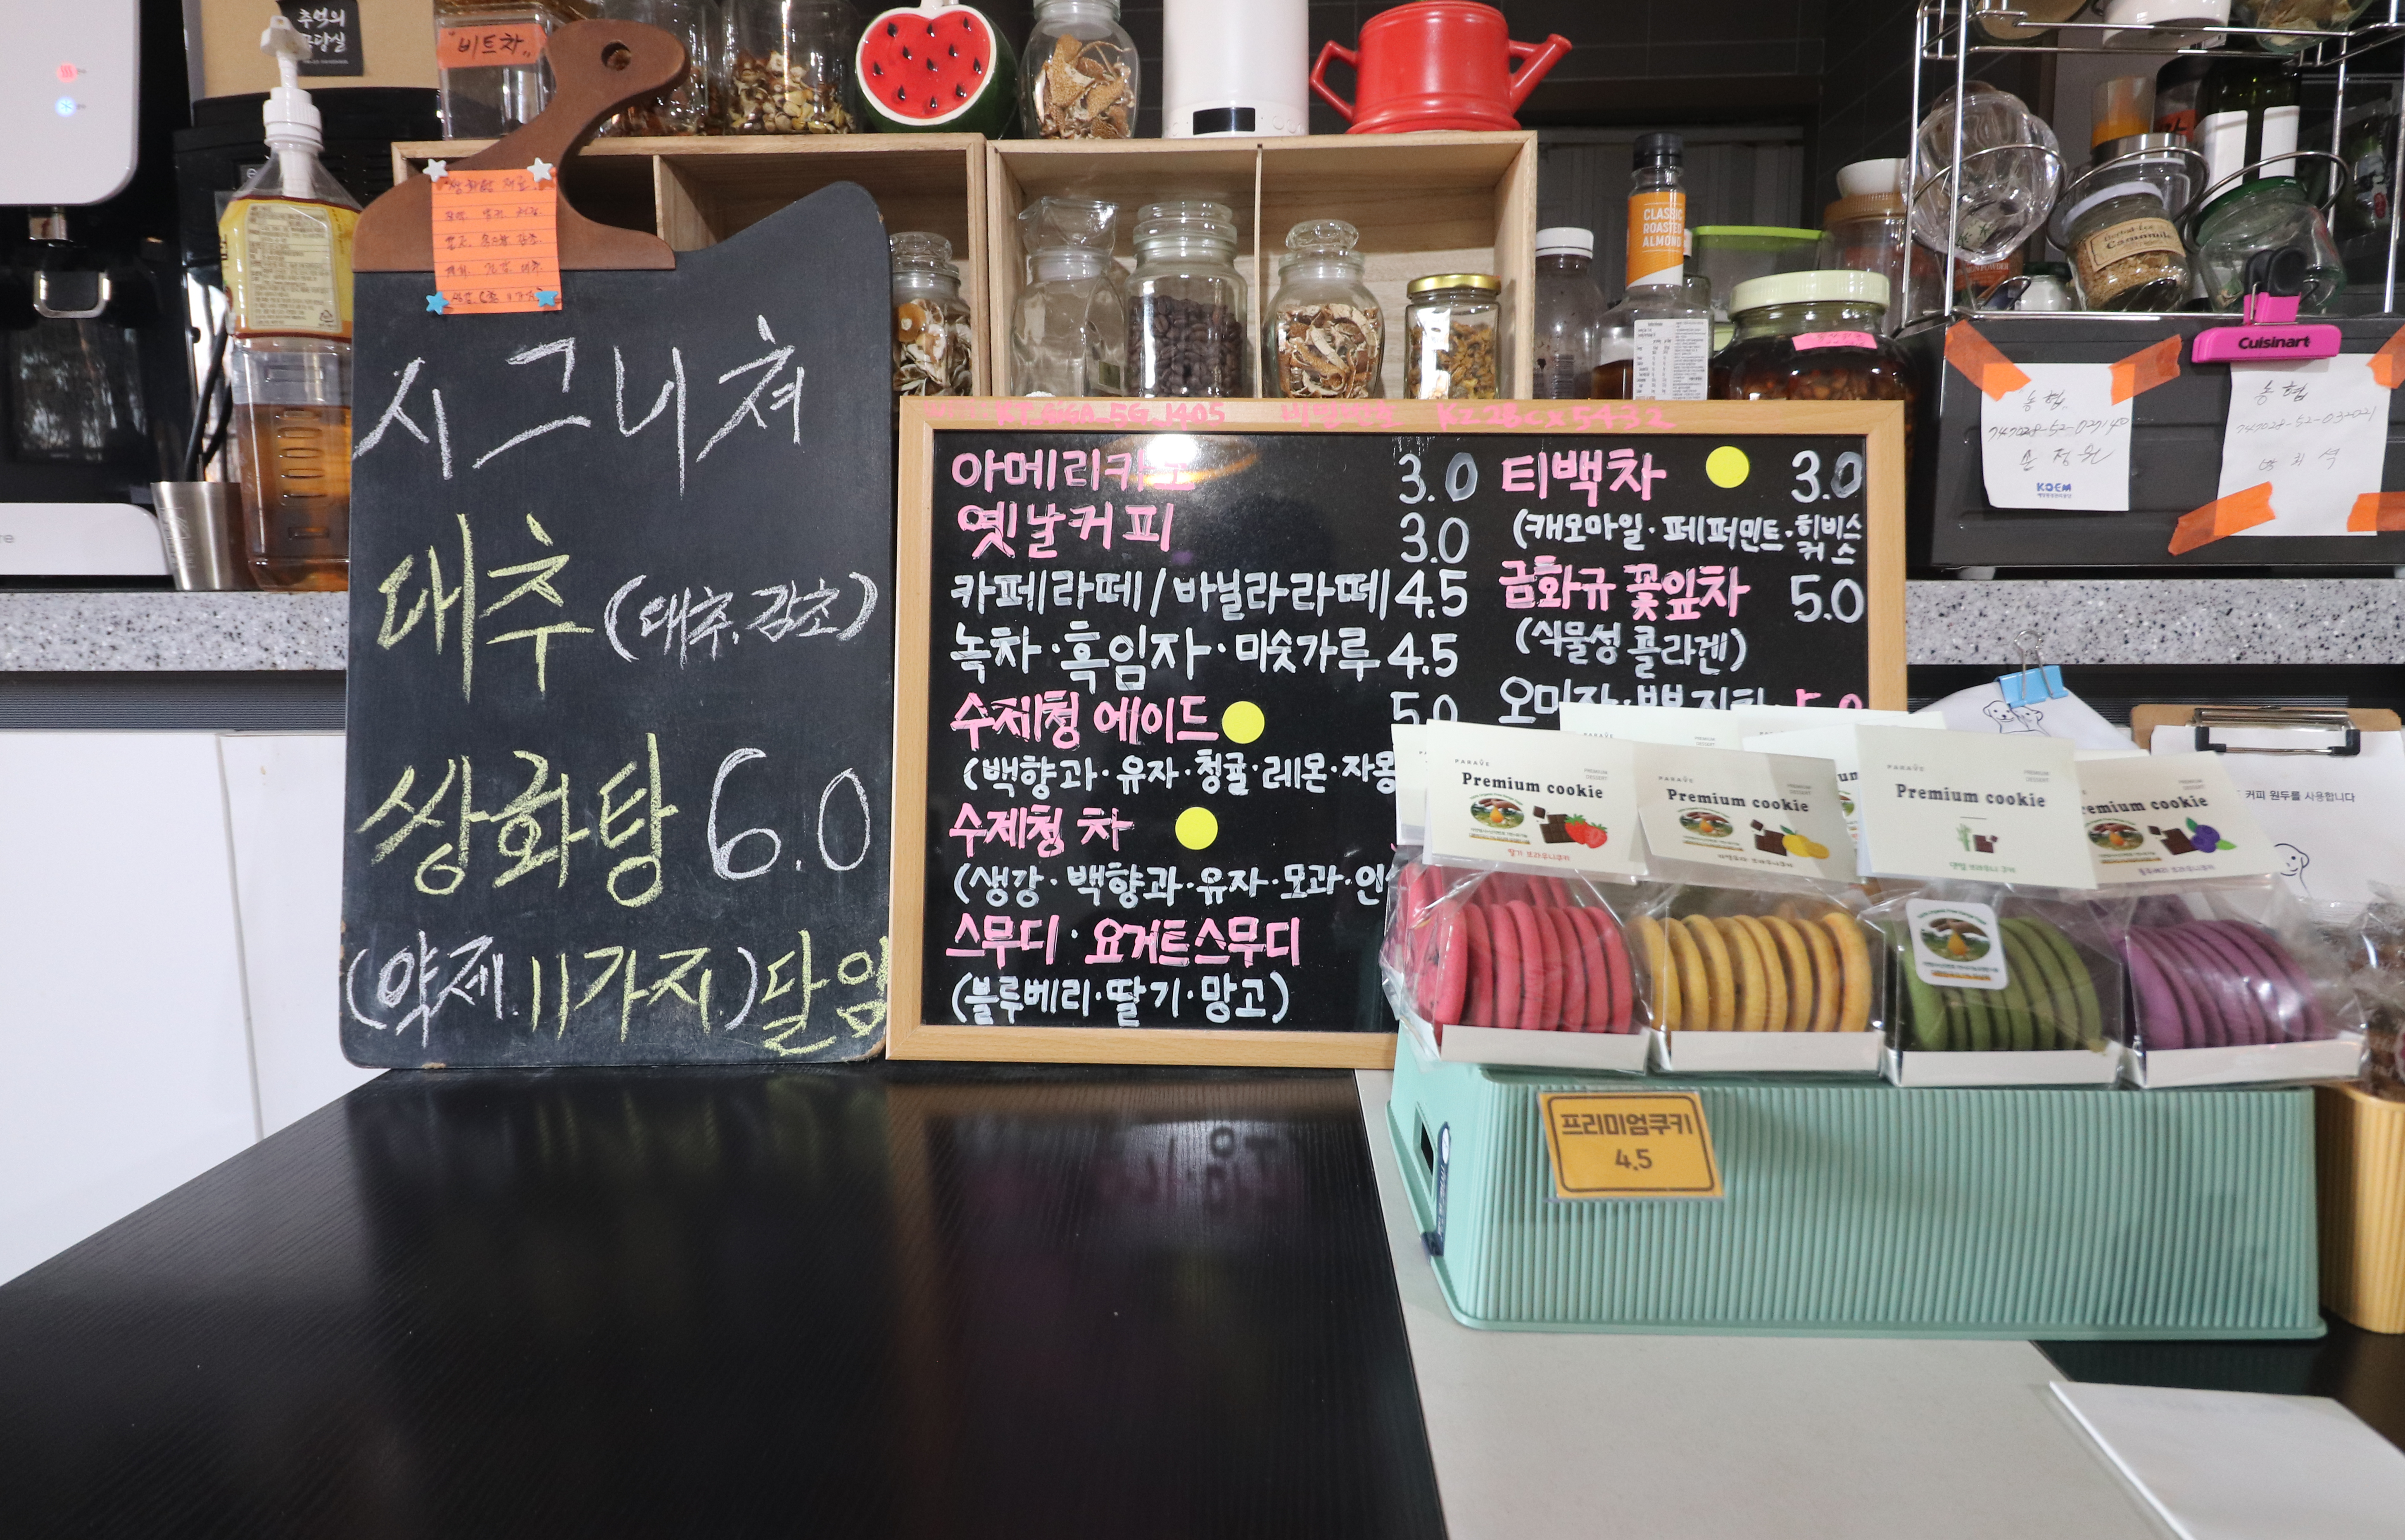 추억의
비트차
시그니쳐
대추 (대추.감초)
쌍화탕 6.0
(약제.11가지.)달임
KT_GiGA_5G_1405 비밀번호
아메리카노 3.0
옛날커피 3.0
카페라떼/바닐라라떼 4.5
녹차·흑임자·미숫가루 4.5
수제청 에이드 5.0
(백향과·유자·청귤·레몬·자몽
수제청 차
(생강·백향과·유자·모과·인
스무디·요거트스무디
(블루베리·딸기·망고)
티백차 3.0
(캐오마일·페퍼민트·히비스커스
금화규 꽃잎차 5.0
(식물성 콜라겐)
CLASSIC
ROASTED
ALMOND
Camomile
Cuisinart
농협
KOEM
농협
커피 원두를 사용합니다
PARAVE
Premium cookie
PREMIUM
DESSERT
딸기 브라우니쿠키
Premium cookie
Premium cookie
Premium cookie
프리미엄쿠키
4.5